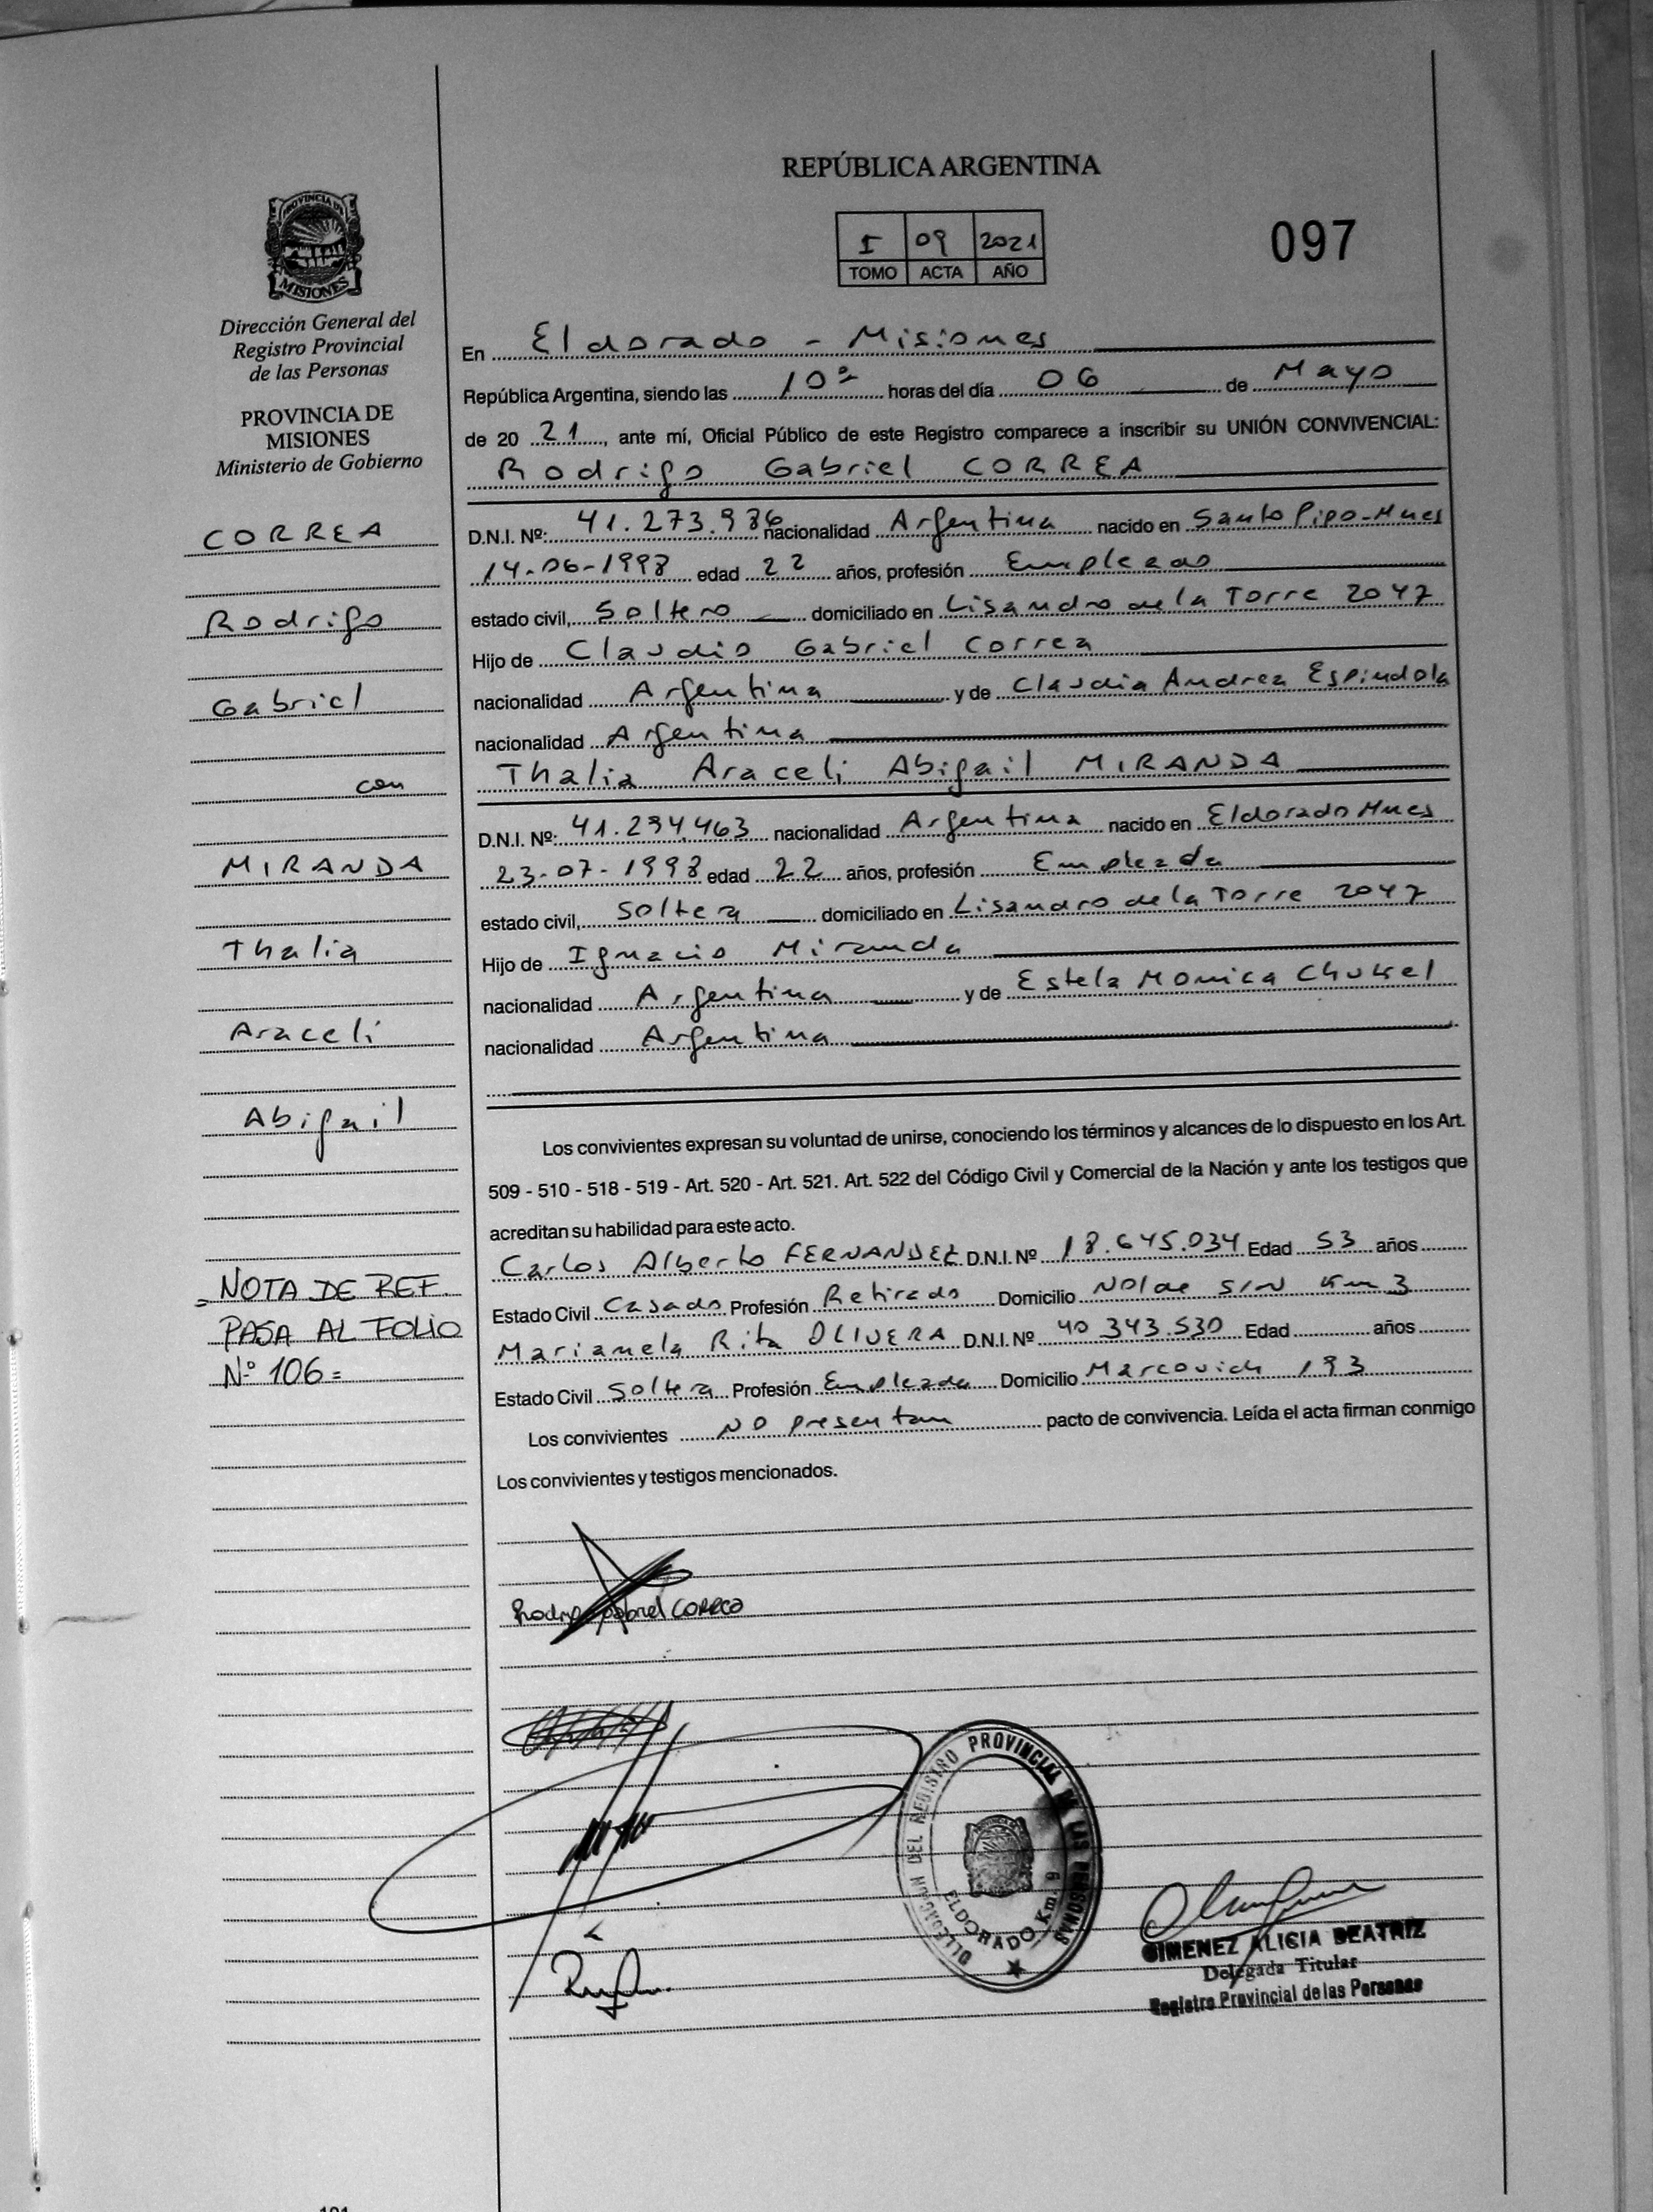 REPÚBLICA ARGENTINA
I 09 2021
TOMO ACTA AÑO
097
PROVINCIA DE
MISIONES
Dirección General del
Registro Provincial
de las Personas
PROVINCIA DE
MISIONES
Ministerio de Gobierno
CORREA
Rodrigo
Gabriel
con
MIRANDA
Thalia
Araceli
Abigail
NOTA DE REF.
PASA AL FOLIO
Nº 106=
En Eldorado - Misiones
República Argentina, siendo las 10 horas del día 06 de Mayo
de 20 21, ante mí, Oficial Público de este Registro comparece a inscribir su UNIÓN CONVIVENCIAL:
Rodrigo Gabriel CORREA
D.N.I. Nº: 41.273.936 nacionalidad Argentina nacido en Santo Pipo-Mnes
14-06-1998 edad 22 años, profesión Empleado
estado civil, Soltero domiciliado en Lisandro de la Torre 2047
Hijo de Claudio Gabriel Correa
nacionalidad Argentina y de Claudia Andrea Espindola
nacionalidad Argentina
Thalia Araceli Abigail MIRANDA
D.N.I. Nº: 41.294.463 nacionalidad Argentina nacido en Eldorado Mnes
23-07-1998 edad 22 años, profesión Empleada
estado civil, Soltera domiciliado en Lisandro de la Torre 2047
Hijo de Ignacio Miranda
nacionalidad Argentina y de Estela Monica
nacionalidad Argentina
Los convivientes expresan su voluntad de unirse, conociendo los términos y alcances de lo dispuesto en los Art.
509 - 510 - 518 - 519 - Art. 520 - Art. 521. Art. 522 del Código Civil y Comercial de la Nación y ante los testigos que
acreditan su habilidad para este acto.
Carlos Alberto FERNANDEZ D.N.I. Nº 18.645.034 Edad 53 años
Estado Civil Casado Profesión Retirado Domicilio Nolde S/N Km 3
Marianela Rita OLIVERA D.N.I. Nº 40 343.530 Edad años
Estado Civil Soltera Profesión Empleada Domicilio Marcovich 193
Los convivientes NO presentan pacto de convivencia. Leída el acta firman conmigo
Los convivientes y testigos mencionados.
Rodrigo Gabriel CORREA
DELEGACION DEL REGISTRO PROVINCIAL DE LAS PERSONAS
ELDORADO Km. 9
GIMENEZ ALICIA BEATRIZ
Delegada Titular
Registro Provincial de las Personas